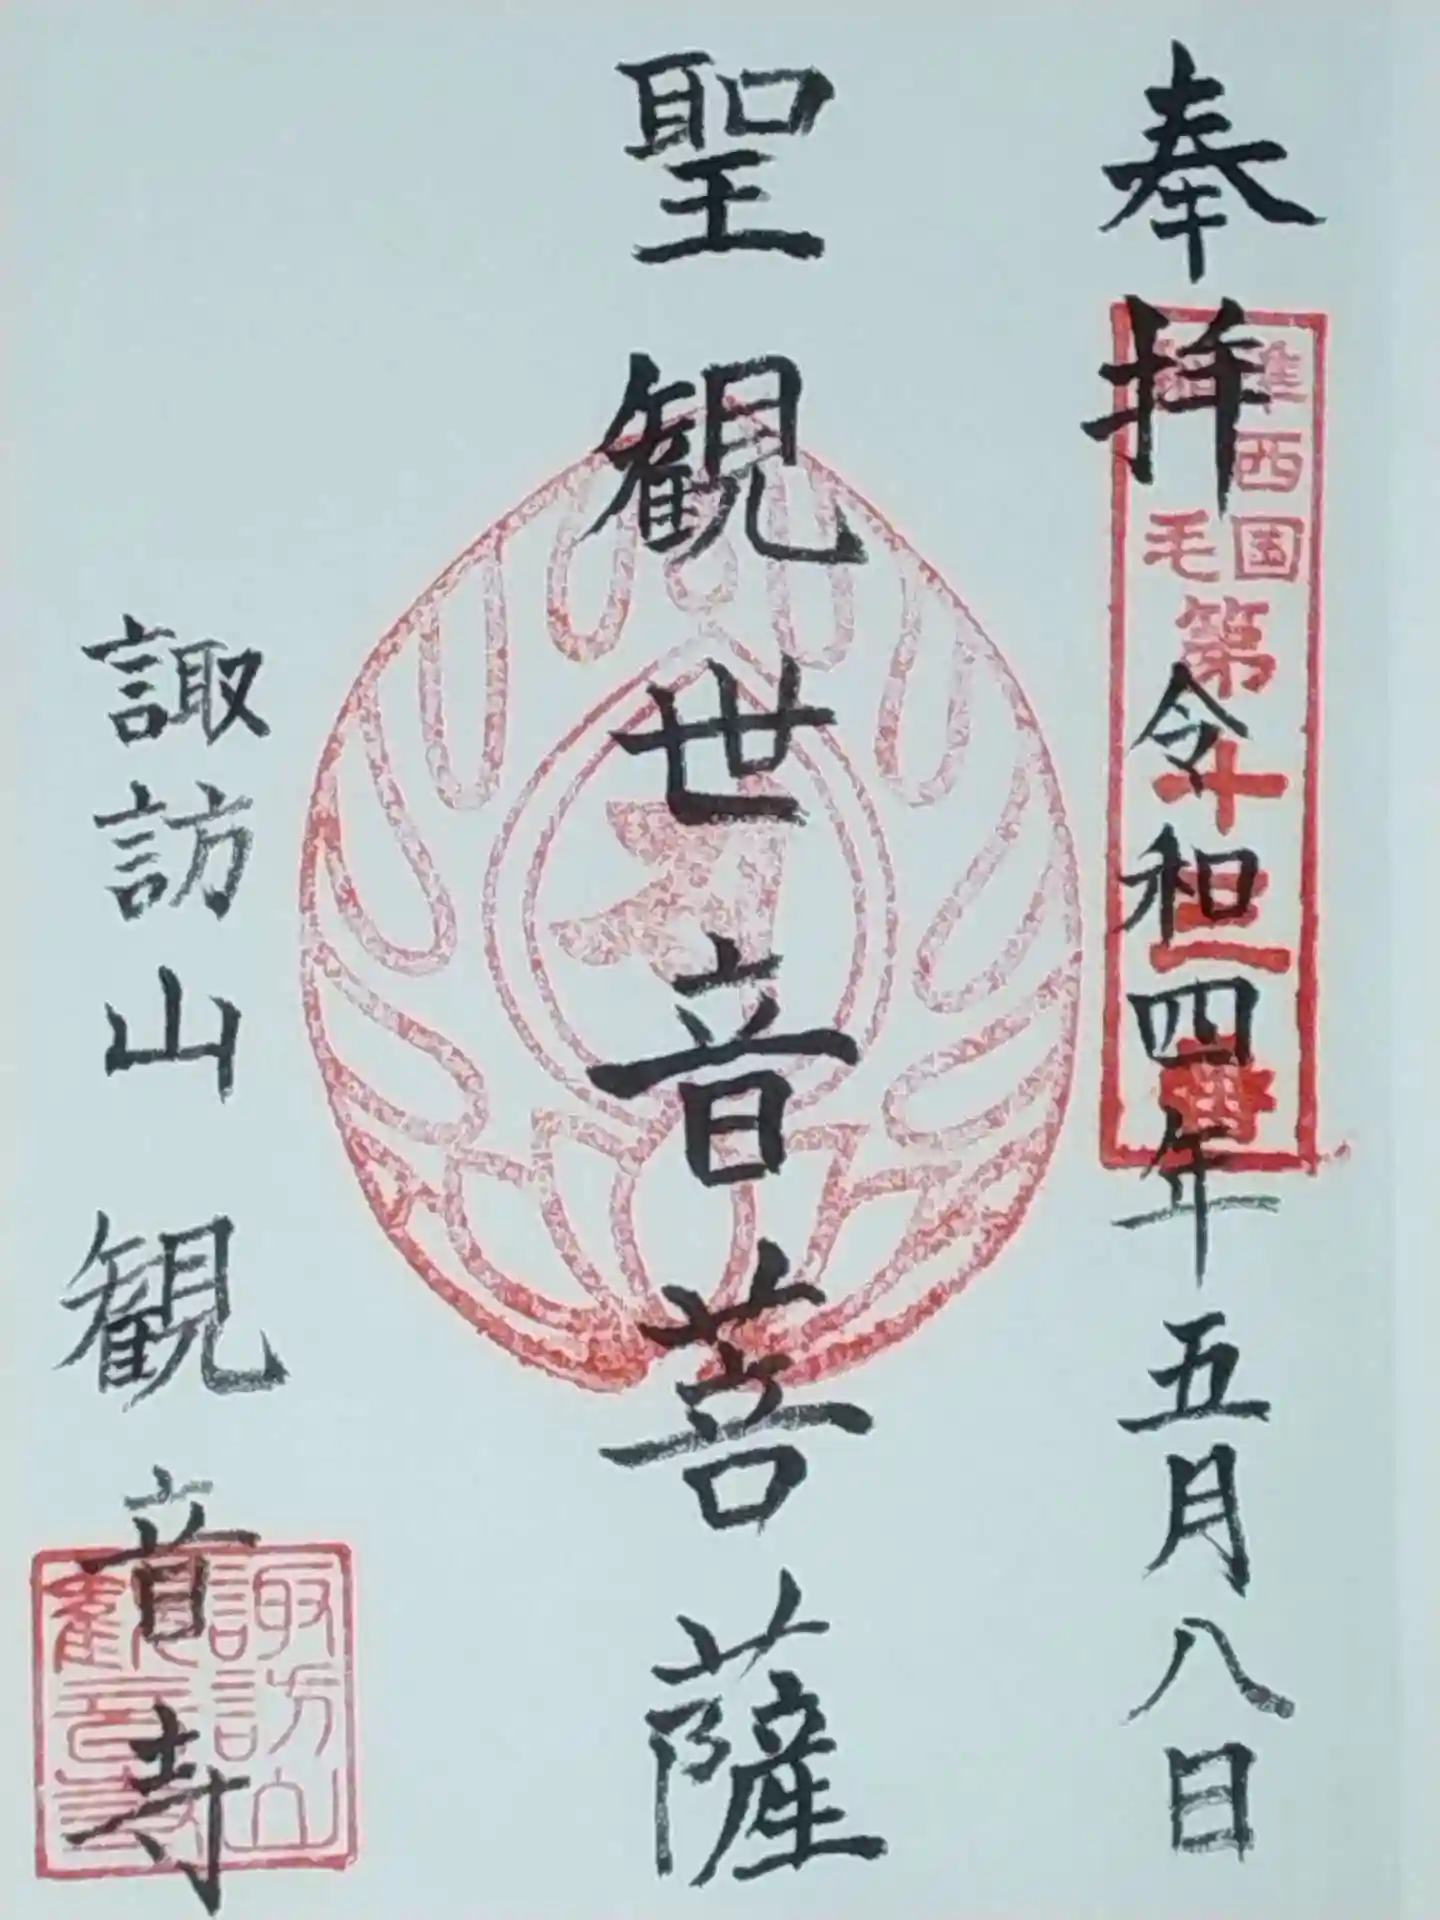 奉拝
令和四年五月八日
準西国
稲毛
第十二番
聖観世音菩薩
諏訪山観音寺
諏訪山
観音寺